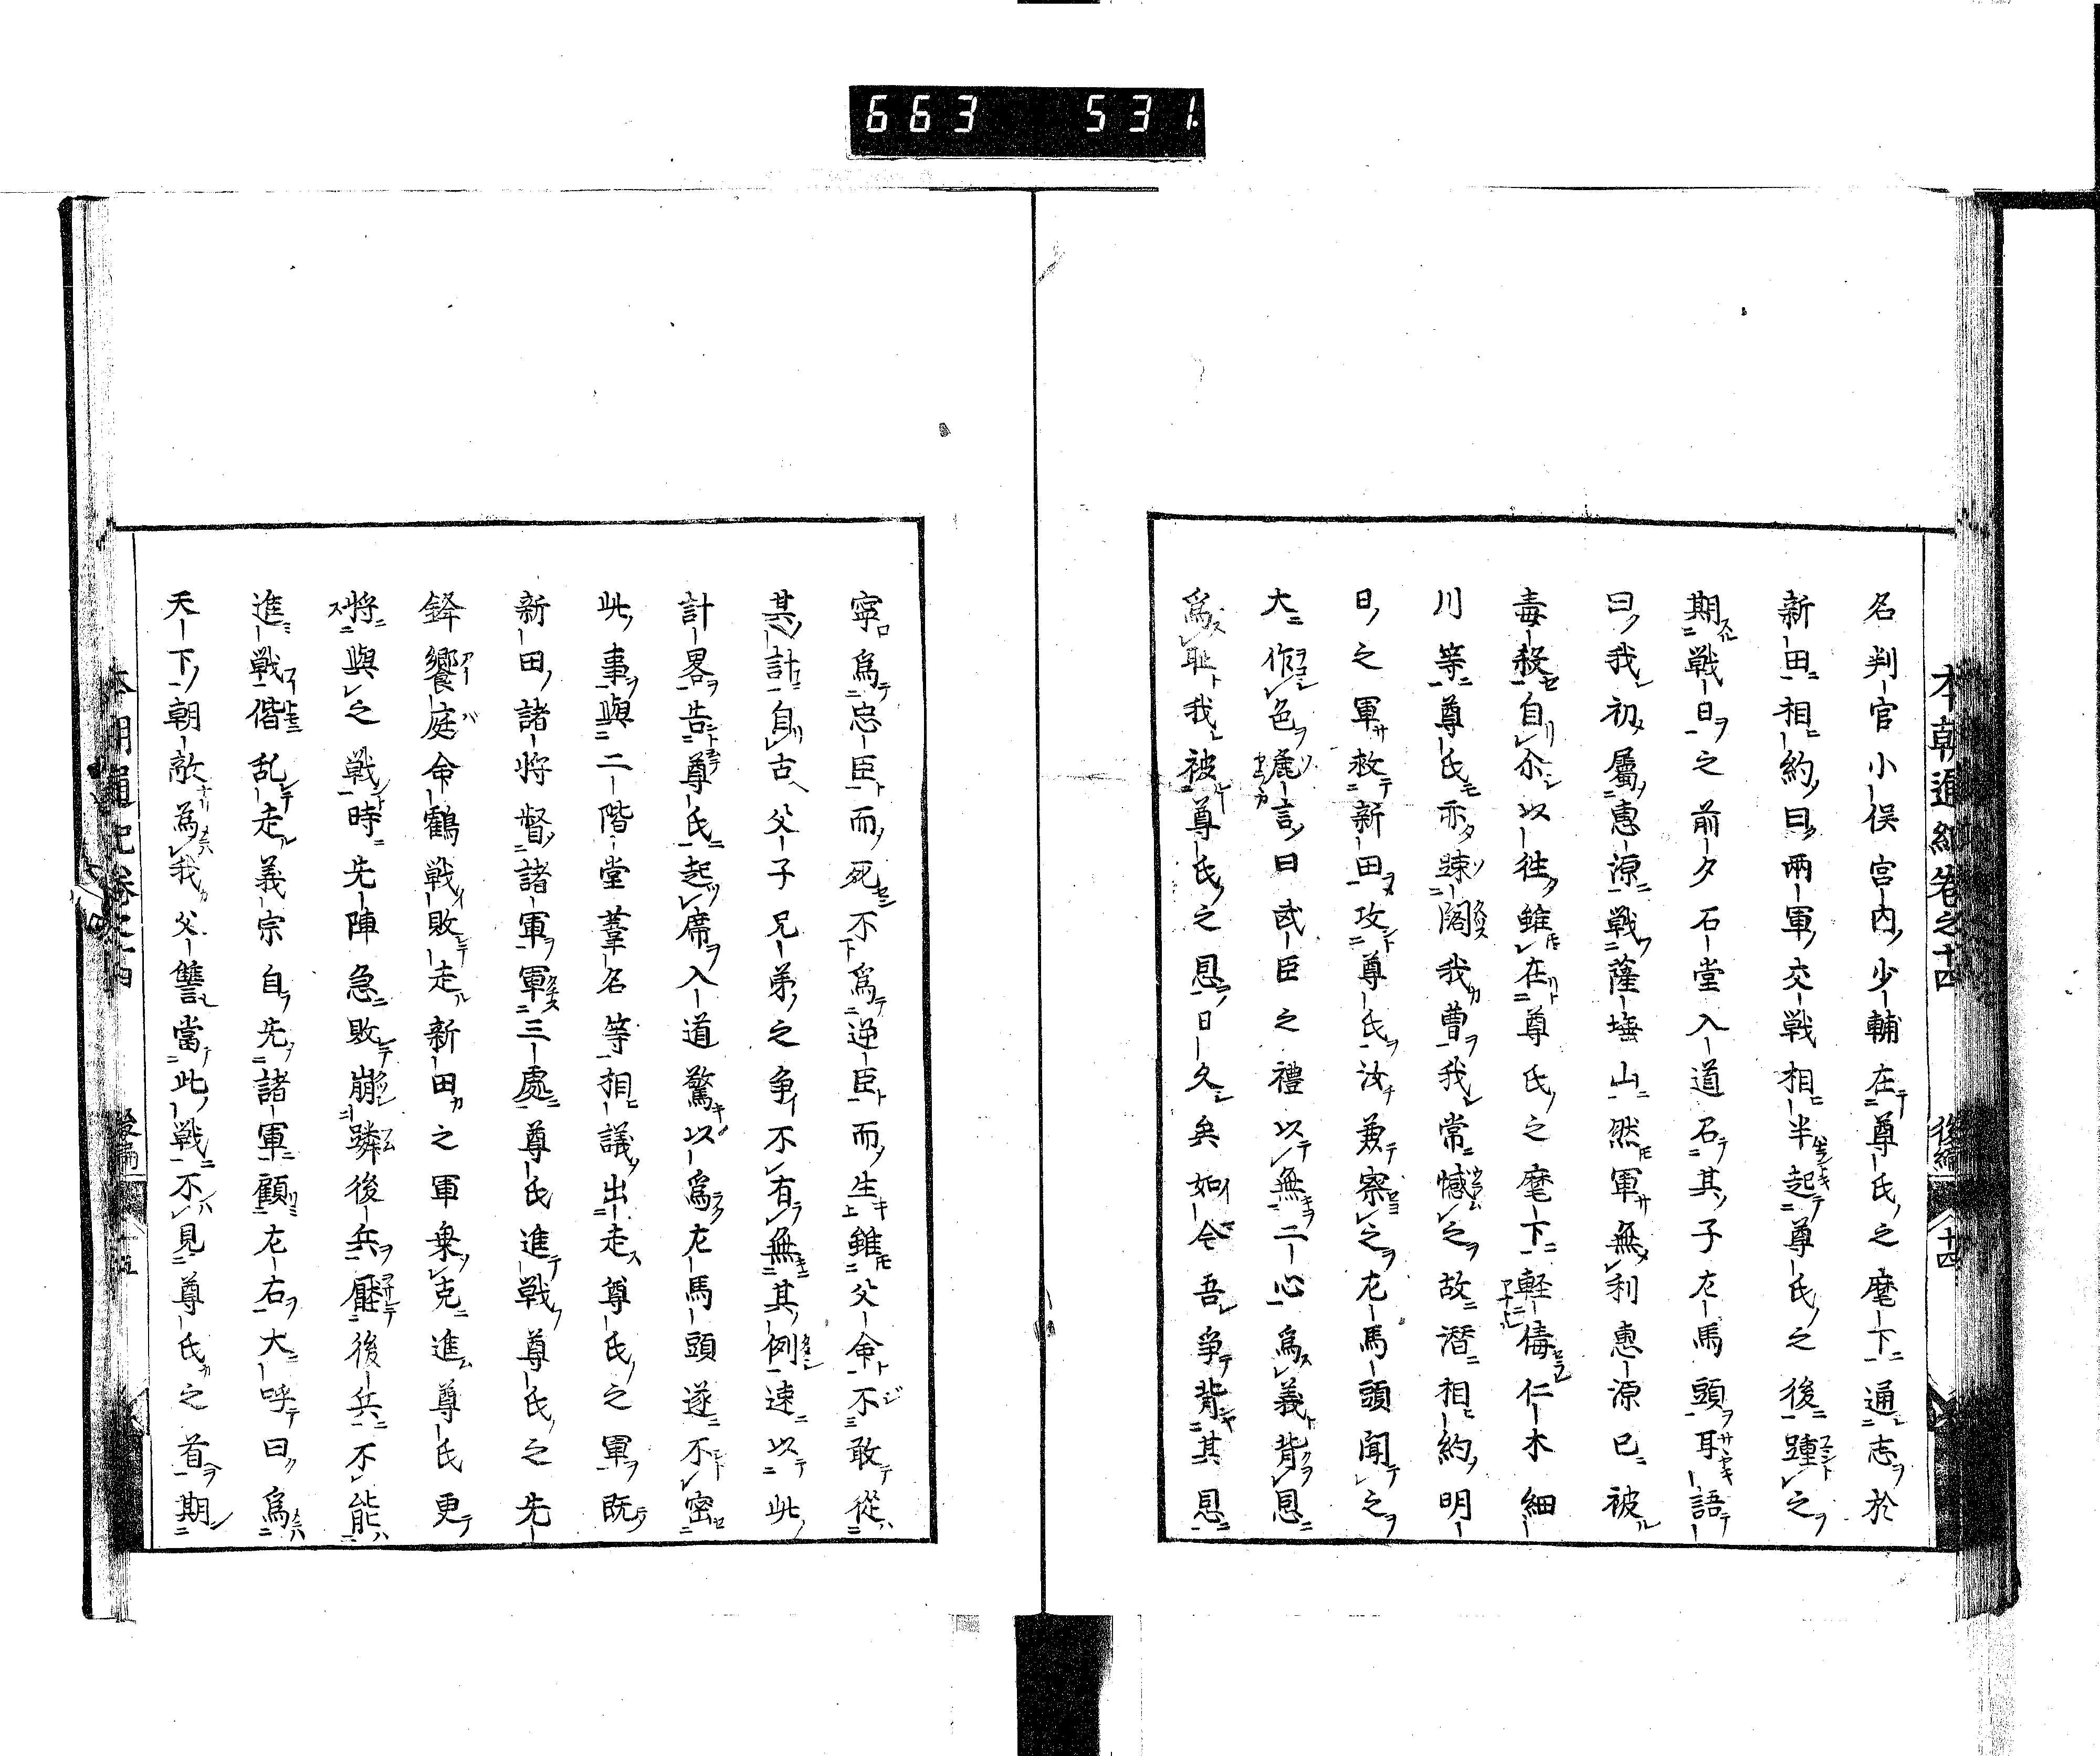 663 531
本朝通紀卷之十四 後編 十四
名判官小俣宮内少輔在尊氏之麾下通志於
新田相約曰兩軍交戦相半起尊氏之後踵之
期戦日之前夕石堂入道召其子左馬頭耳語
曰我初屬惠源戦薩埵山然軍無利惠源已被
毒殺自尒以徃雖在尊氏之麾下軽侮仁木細
川等尊氏亦踈闊我曹我常憾之故潜相約明
日之軍救新田攻尊氏汝兼察之左馬頭聞之
大作色麁言曰武臣之禮以無二心為義背恩
為耻我被尊氏之恩日久矣如令吾爭背其恩
寧為忠臣而死不為逆臣而生雖父命不敢從
其計自古父子兄弟之争不有無其例速以此
計畧告尊氏起席入道驚以為左馬頭遂不密
此事與二階堂葦名等相議出走尊氏之軍既
新田諸将督諸軍軍三處尊氏進戦尊氏之先
鋒饗庭命鶴戦敗走新田之軍乗克進尊氏更
将與之戦時先陣急敗崩躪後兵壓後兵不能
進戦偕乱走義宗自先諸軍顧左右大呼曰為
天下朝敵為我父讐當此戦不見尊氏之首期
本朝通紀卷之十四 後編